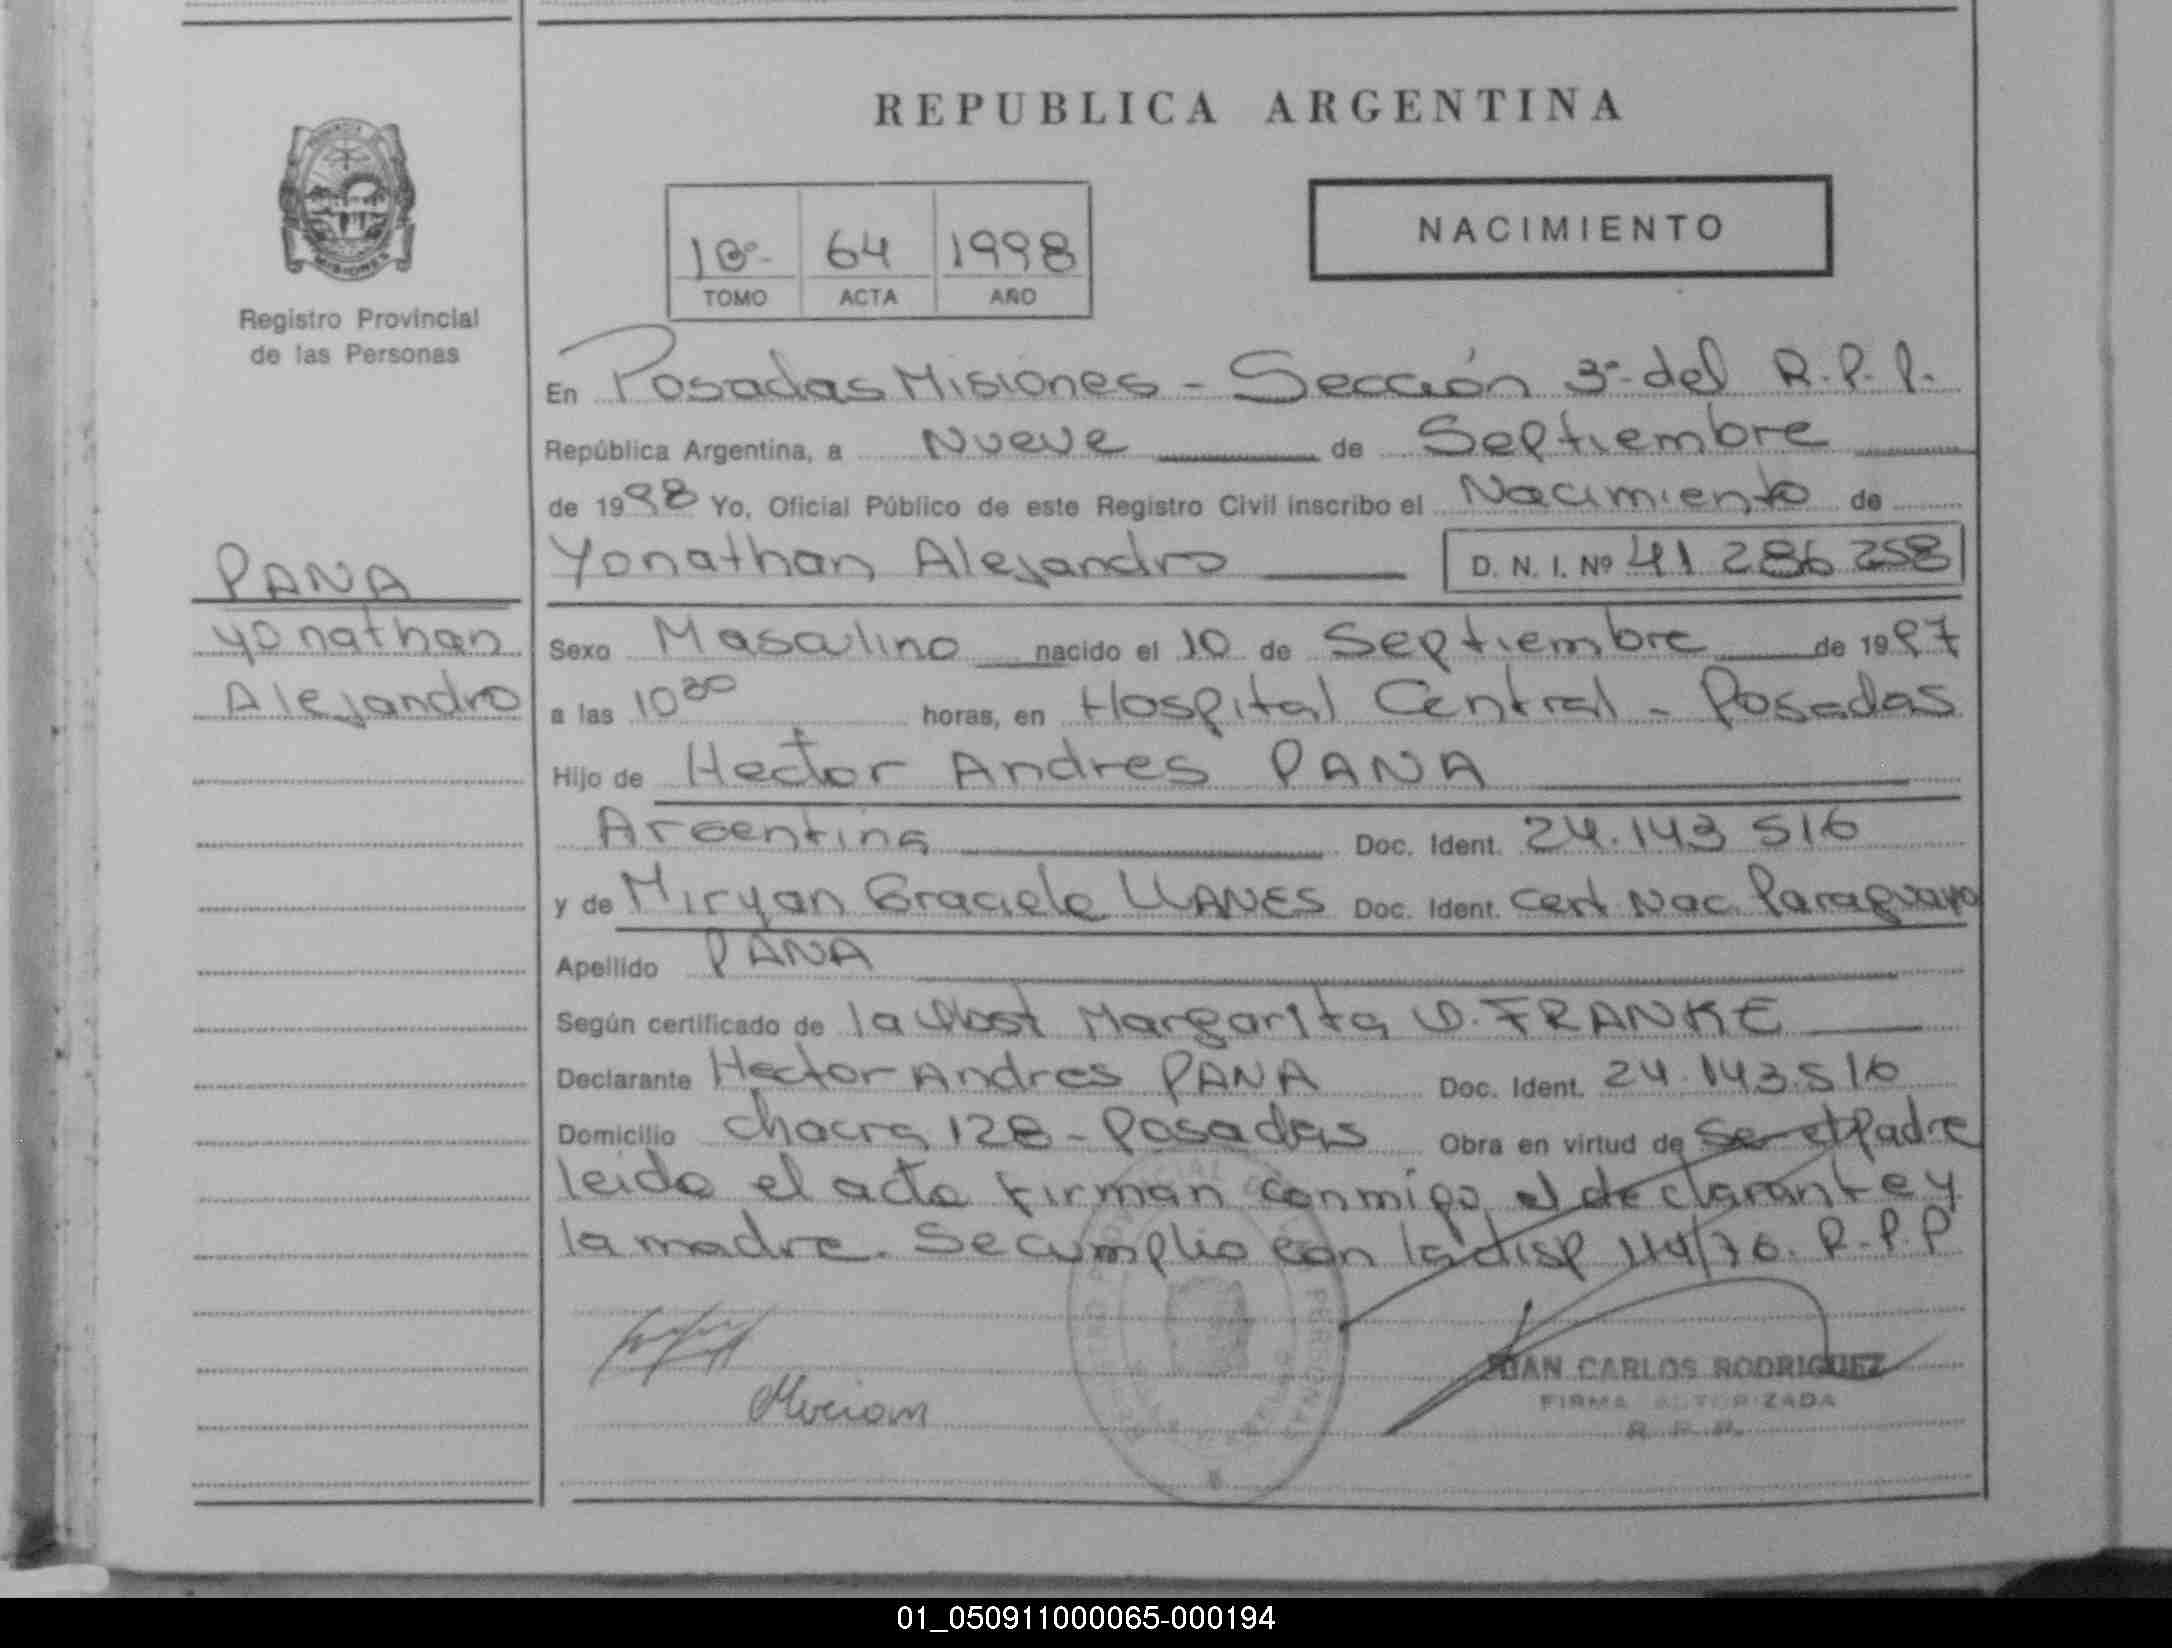 REPUBLICA ARGENTINA
NACIMIENTO
64 1998
TOMO ACTA AÑO
MISIONES
Registro Provincial
de las Personas
En Posadas Misiones - Sección 3ª del R.P.P.
República Argentina, a Nueve de Septiembre
de 1998 Yo, Oficial Público de este Registro Civil inscribo el Nacimiento de
Yonathan Alejandro D. N. I. Nº 41 286 258
PANA
Yonathan
Alejandro
Sexo Masculino nacido el 10 de Septiembre de 1997
a las 10 30 horas, en Hospital Central - Posadas
Hijo de Hector Andres PANA
Argentina Doc. Ident. 24.143 516
y de Miryan Graciela LLANES Doc. Ident. Cert Nac. Paraguaya
Apellido PANA
Según certificado de la Obst Margarita D. FRANKE
Declarante Hector Andres PANA Doc. Ident. 24.143.516
Domicilio chacra 128 - Posadas Obra en virtud de Ser el Padre
leida el acta firman conmigo el declarante y
la madre. Se cumplio con la disp 114/76. R.P.P
Miriam
JUAN CARLOS RODRIGUEZ
FIRMA AUTORIZADA
R. P. P.
01_050911000065-000194